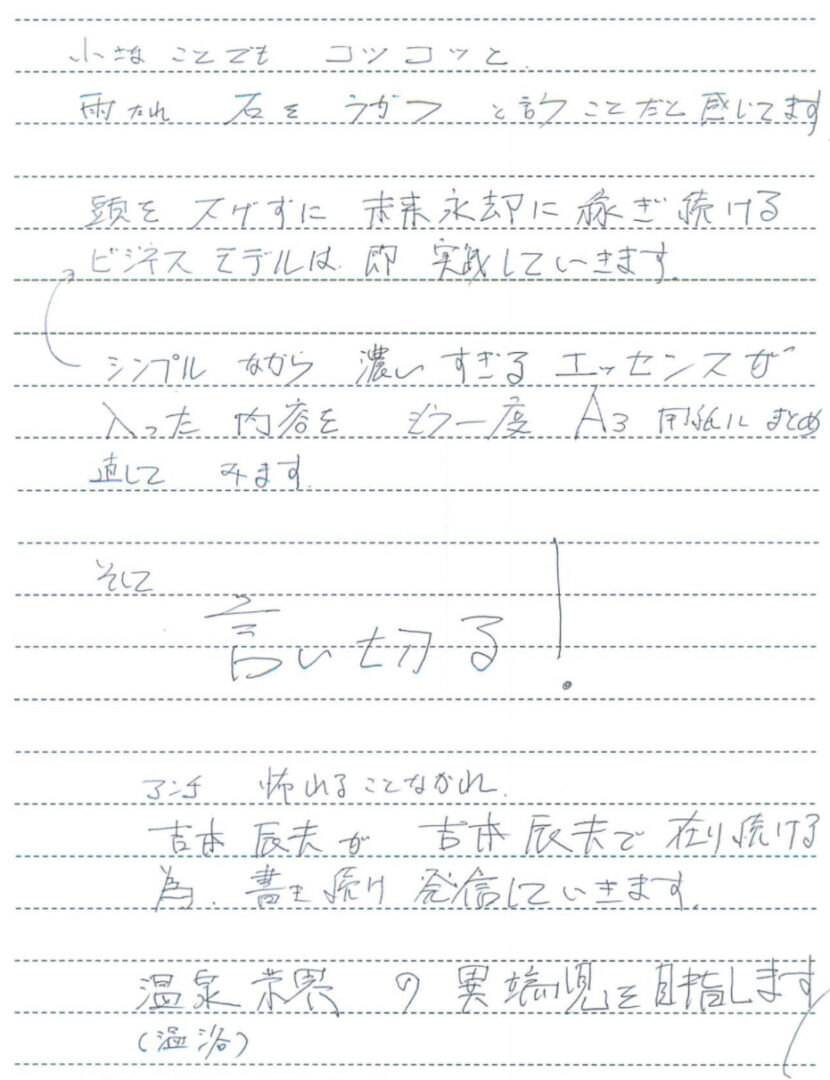 小さな ことでも コツコツと.
雨だれ 石を うがつ と言う ことだと 感じてます
頭を 下げずに 未来永却に 稼ぎ 続ける
ビジネス モデルは 即 実践していきます.
シンプル ながら 濃い すぎる エッセンスが
入った 内容を もう一度 A3 用紙に まとめ
直して みます.
そして
言い切る!
アンチ 怖れることなかれ.
吉本 辰夫が 吉本 辰夫で 在り続ける
為、書き続け 発信していきます.
温泉業界 の 異端児を目指します
(温浴)